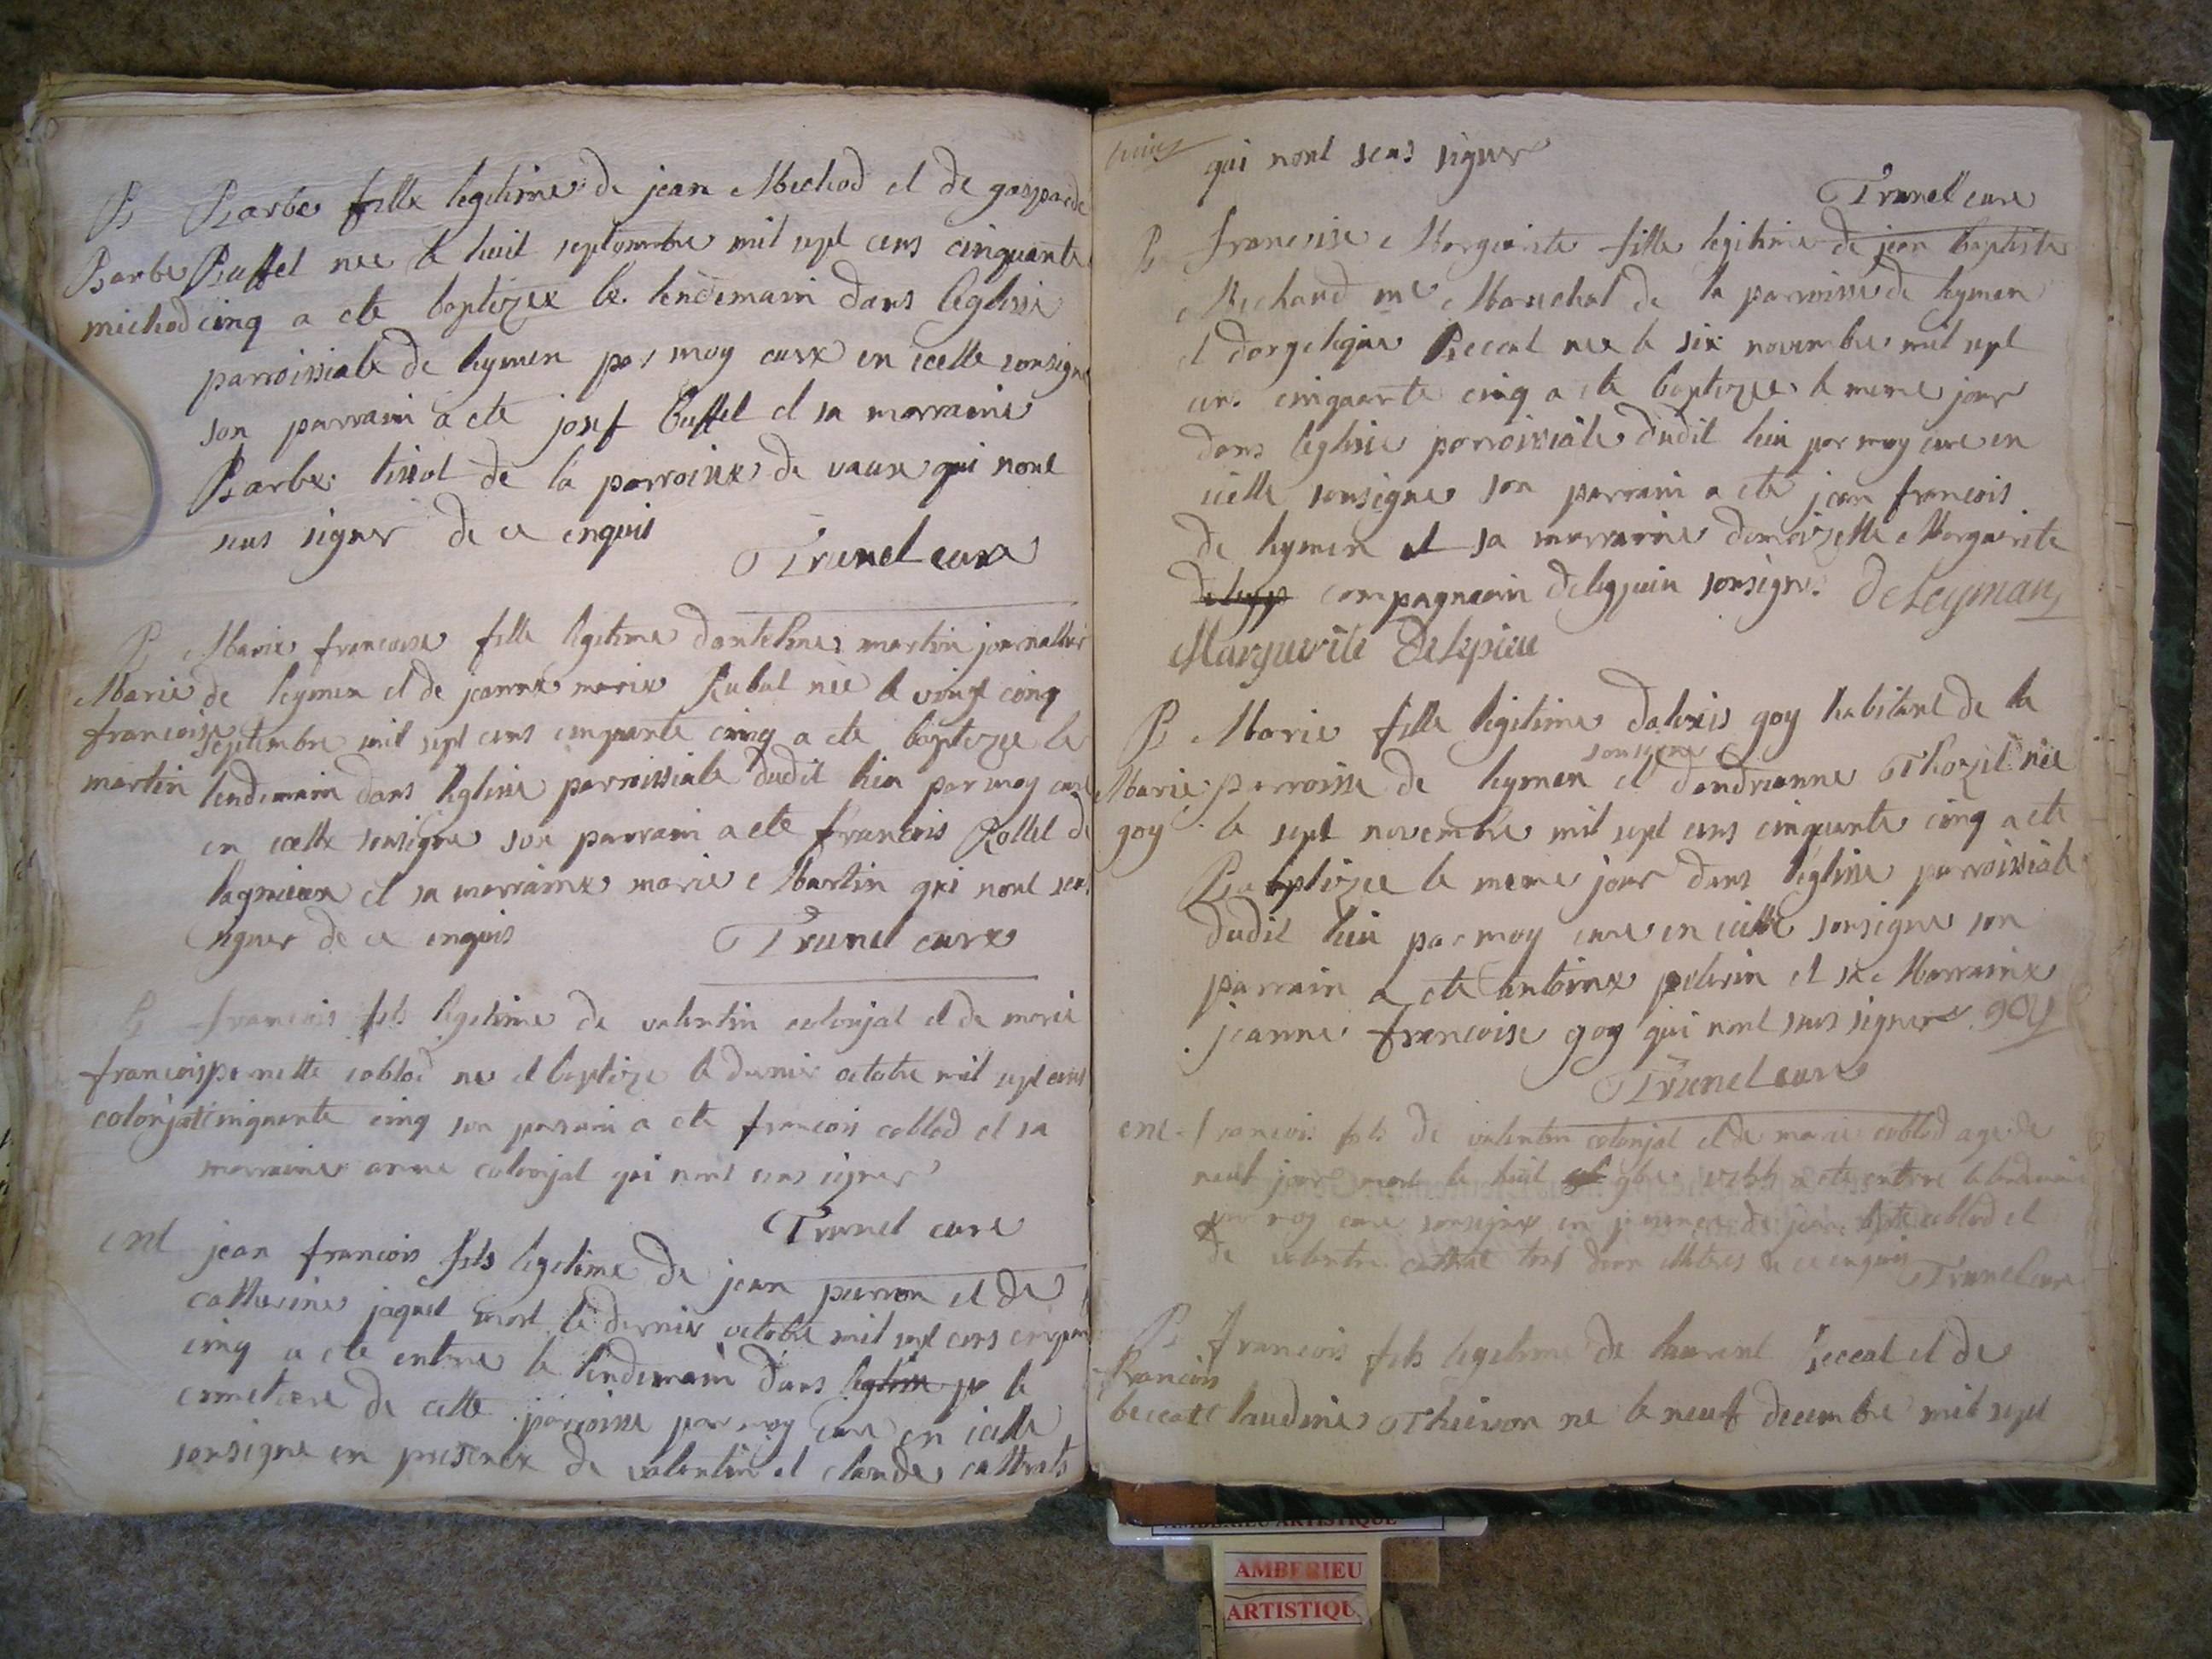 B Barbe fille legitime de jean Michod et de gasparde
Barbe Buffet nee le huit septembre mil sept cens cinquante
michod cinq a ete baptizee le lendemain dans leglise
parroissiale de leymen par moy cure en icelle sousigne
son parrain a ete josef buffet et sa marraine
Barbe tissot de la parroisse de vaux qui nont
seus signer de ce enquis
Trunel cure
B Marie francoise fille legitime dantelme martin journallier
Marie de leymen et de jeanne marie Rubat nèe le vingt cinq
francoise septembre mil sept cens cinquante cinq a ete baptizee le
martin lendemain dans leglise parroissiale dudit lieu par moy cure
en icelle sousigne son parrain a ete francois Rollet de
lagnieux et sa marraine marie Martin qui nont seus
signer de ce enquis Trunel cure
B francois fils legitime de valentin colonjat et de marie
francois pernette coblod ne et baptize le dernier octobre mil sept cens
colonjat cinquante cinq son parain a ete francois coblod et sa
marraine anne colonjat qui nont seus signer
Trunel cure
ent jean francois fils legitime de jean perron et de
catherine jaquet mort le dernier octobre mil sept cens cinquante
cinq a ete enterre le lendemain dans leglise pa le
cimetiere de cette parroisse par moy cure en icelle
sousigne en presence de valentin et claude cattrats
qui nont seus signer
Trunel cure
B francoise Margueritte fille legitime de jean baptiste
Michaud me Marechal de la parroisse de leymen
et dangelique Beccat nee le six novembre mil sept
cens cinquante cinq a ete baptizee le meme jour
dans leglise parroissiale dudit lieu par moy cure en
icelle sousigne son parrain a ete jean francois
de leymen et sa marraine demoizelle Marguerite
compagnain sousigne. DeLeyman
Marguerite
B Marie fille legitime dalexis goy habitant de la
sousigne
Marie parroisse de leymen et dandrianne Thozit nèe
goy le sept novembre mil sept cens cinquante cinq a ete
Babptizee le meme jour dans leglise parroissiale
dudit lieu par moy cure en icelle sousigne son
parrain a ete antoine pelerin et sa Marraine
jeanne francoise goy qui nont seus signer goy
Trunel cure
ent francois fils de valentin colonjat et de marie coblod age de
neuf jour mort le huit 9bre 1755 a ete enterre le lendemain
par moy cure sousigne en presence de jean bpte coblod et
de valentin cattrat tous deux illetres de ce enquis Trunel cure
B francois fils legitime de laurent beccat et de
francois
beccat claudine Thievon ne le neuf decembre mil sept
AMBERIEU ARTISTIQUE
AMBERIEU
ARTISTIQU